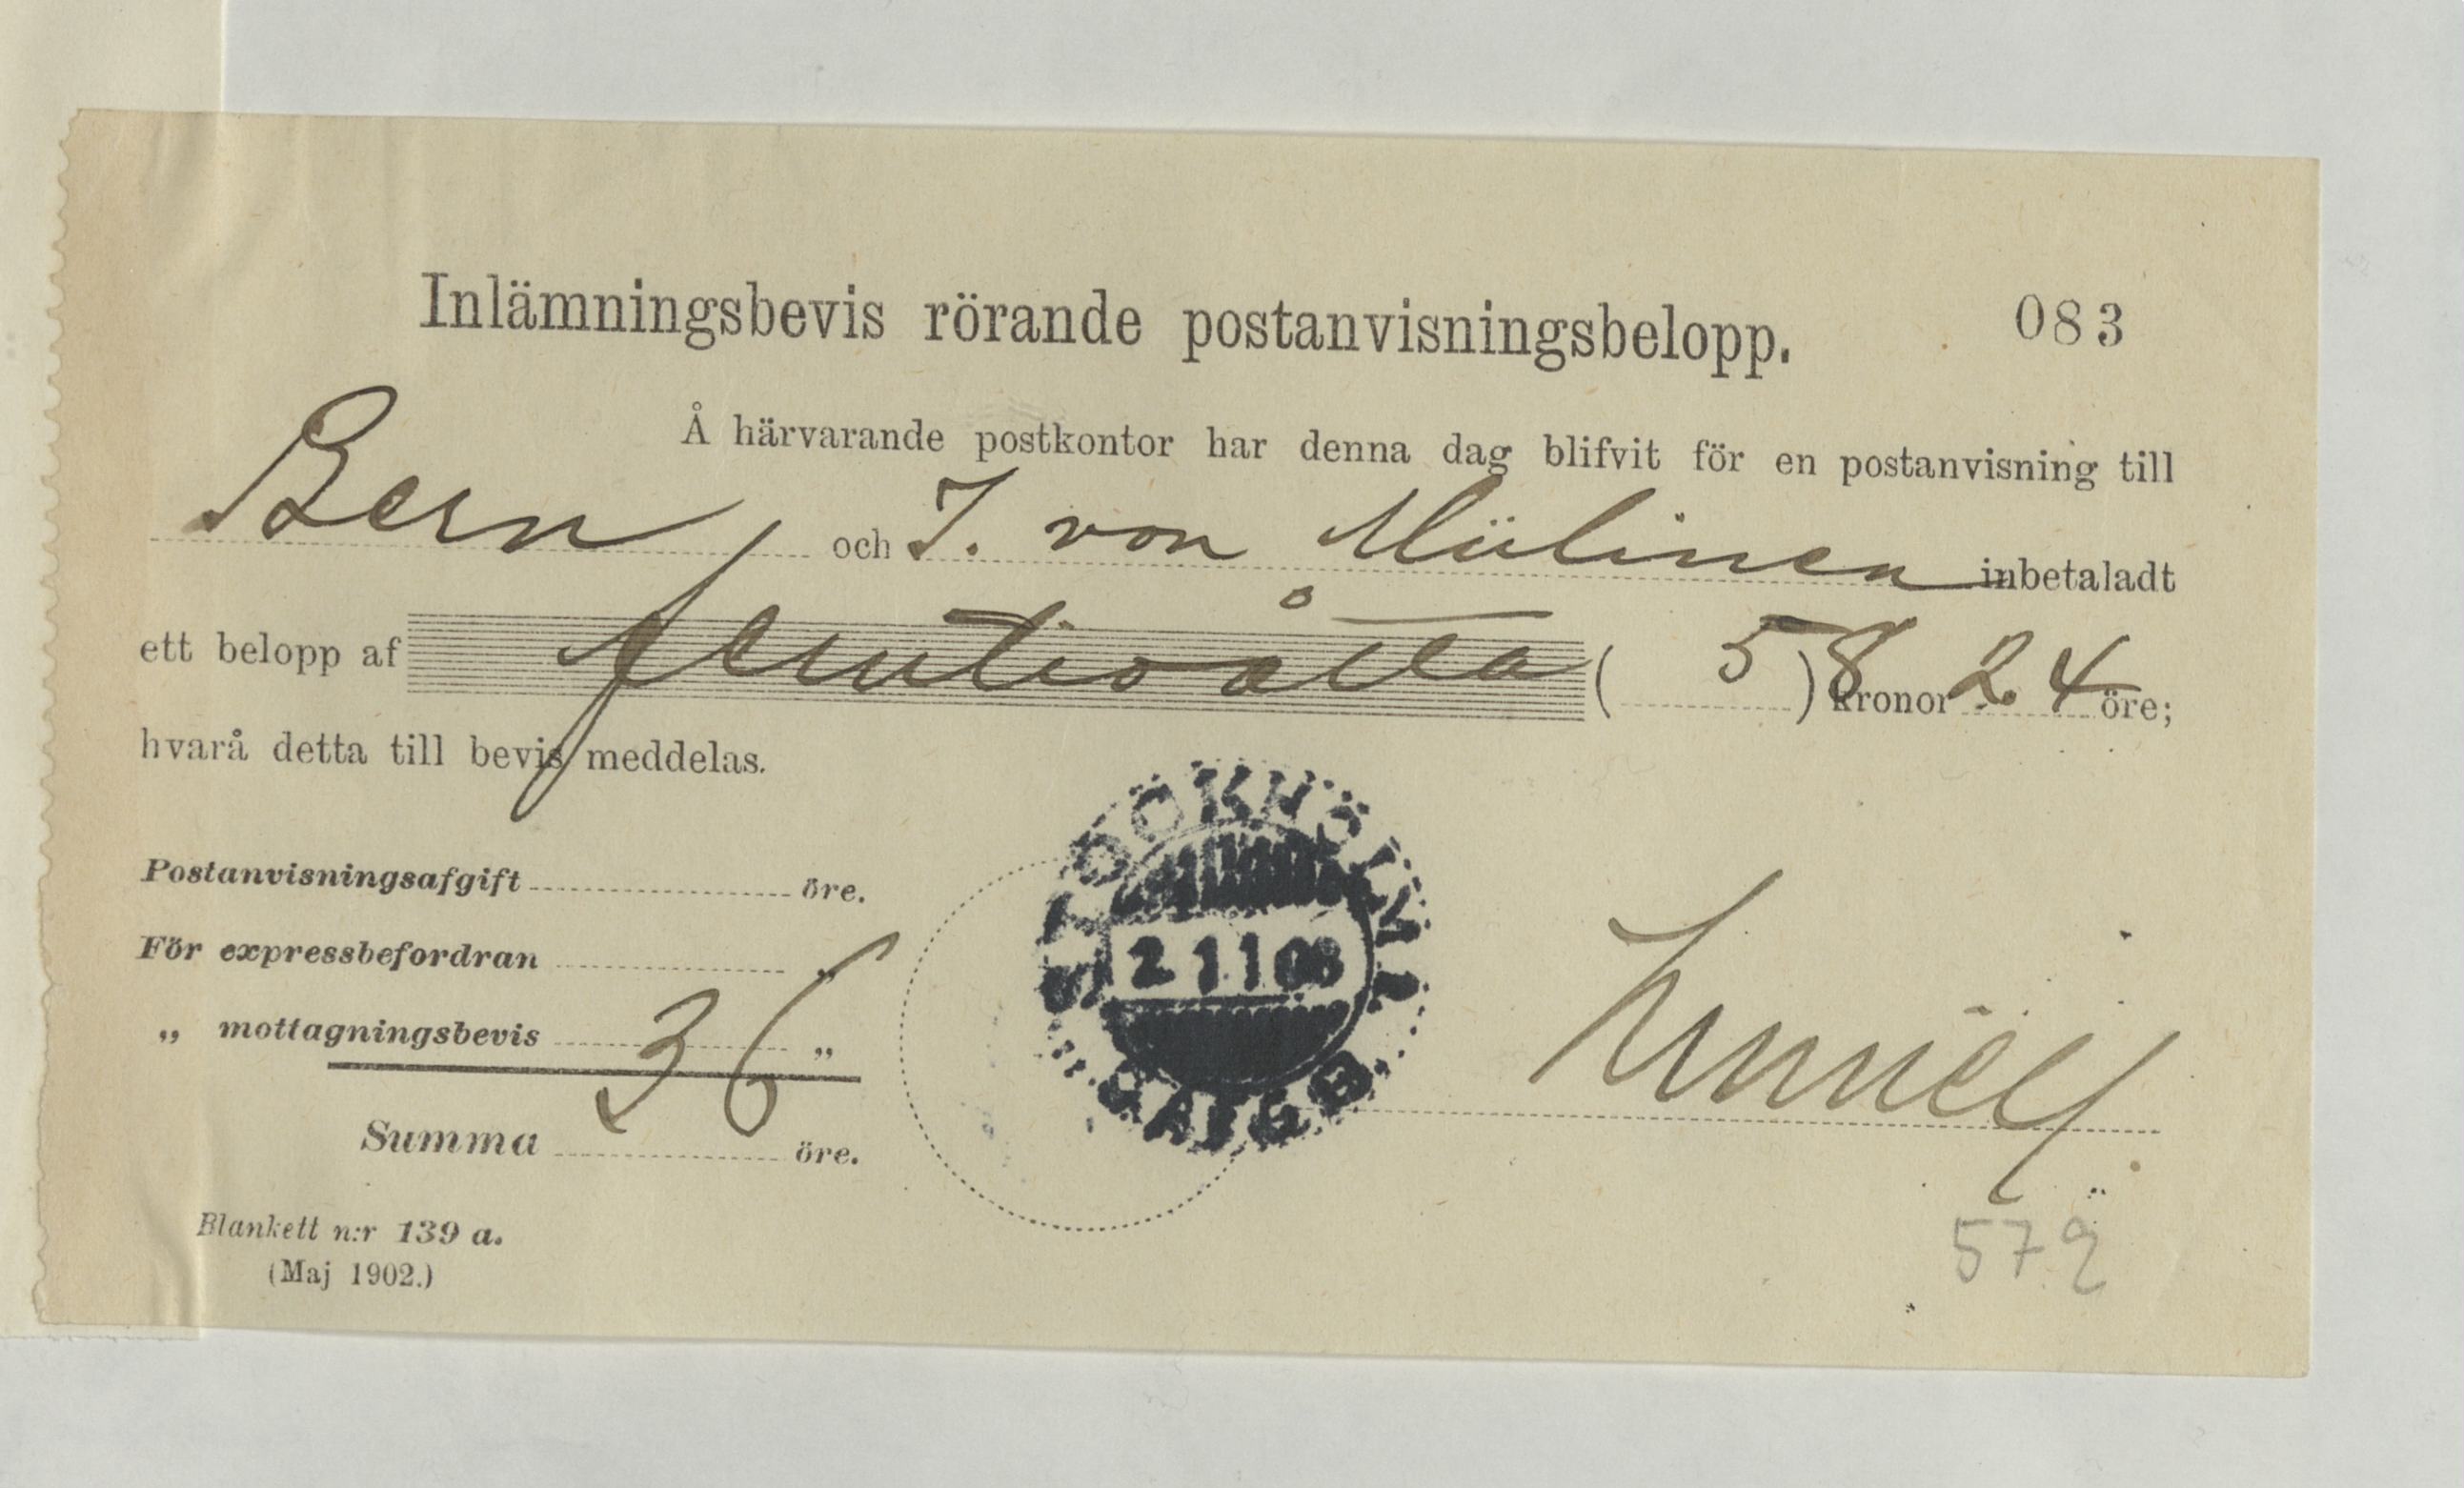 Inlämningsbevis rörande postanvisningsbelopp. 083
Å härvarande postkontor har denna dag blifvit för en postanvisning till
Bern, och J. von Mülinen inbetaladt
ett belopp af femtioåtta ( 58 ) kronor 24 öre;
hvarå detta till bevis meddelas.
STOCKHOLM 1
2 11 08
AFG.
Postanvisningsafgift öre.
För expressbefordran „
„ mottagningsbevis „
36
Summa öre.
Blankett n:r 139 a.
(Maj 1902.)
572